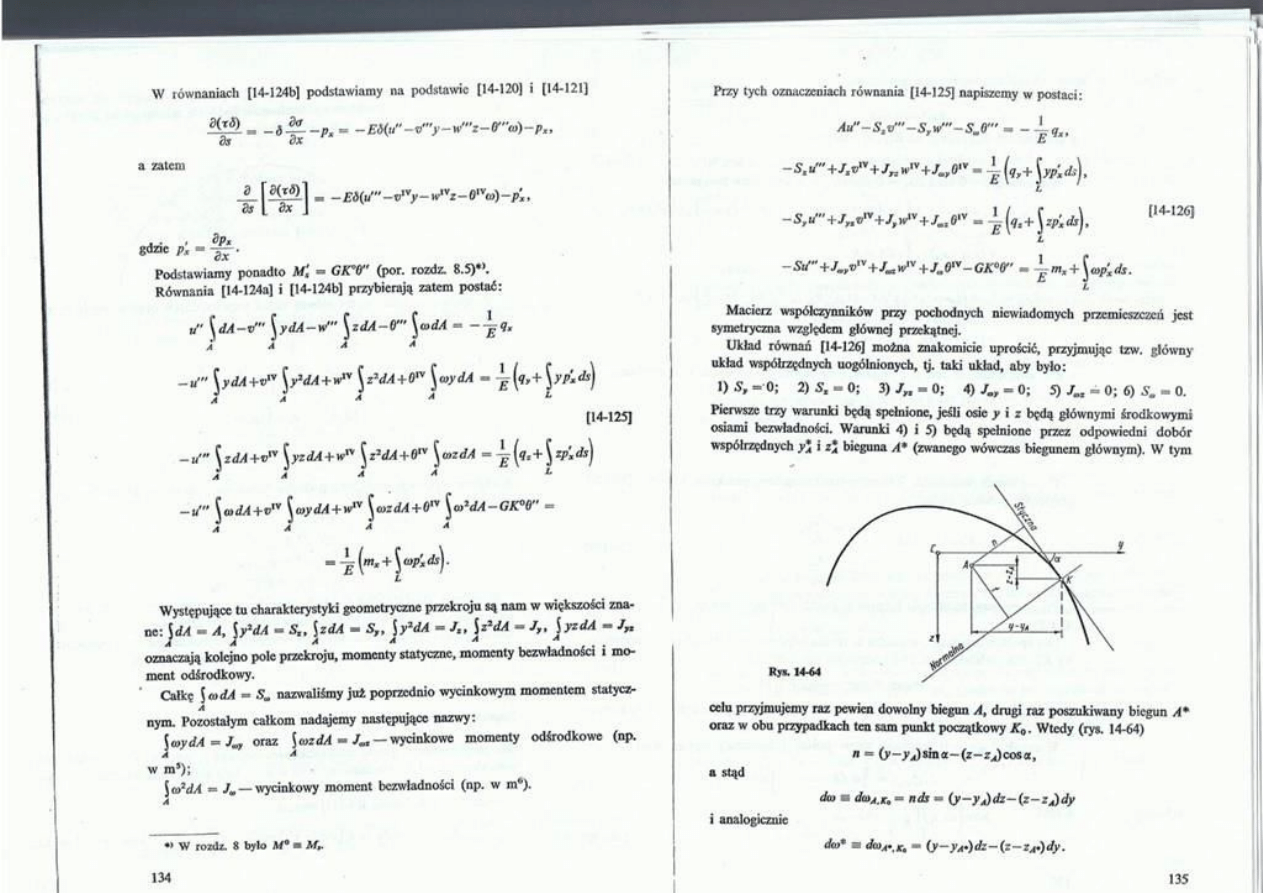 W równaniach [14-124b] podstawiamy na podstawie [14-120] i [14-121]
∂(τδ)/∂s = −δ ∂σ/∂x −pₓ = −Eδ(u″−v‴y−w‴z−θ‴ω)−pₓ,
a zatem
∂/∂s [∂(τδ)/∂x] = −Eδ(u‴−vᴵⱽy−wᴵⱽz−θᴵⱽω)−p′ₓ,
gdzie p′ₓ = ∂pₓ/∂x.
Podstawiamy ponadto M′ₛ = GK⁰θ″ (por. rozdz. 8.5)*⁾.
Równania [14-124a] i [14-124b] przybierają zatem postać:
u″ ∫_A dA−v‴ ∫_A ydA−w‴ ∫_A zdA−θ‴ ∫_A ωdA = −1/E qₓ
−u‴ ∫_A ydA+vᴵⱽ ∫_A y²dA+wᴵⱽ ∫_A z²dA+θᴵⱽ ∫_A ωydA = 1/E (q_y+∫_L yp′ₓds)
[14-125]
−u‴ ∫_A zdA+vᴵⱽ ∫_A yzdA+wᴵⱽ ∫_A z²dA+θᴵⱽ ∫_A ωzdA = 1/E (q_z+∫_L zp′ₓds)
−u‴ ∫_A ωdA+vᴵⱽ ∫_A ωydA+wᴵⱽ ∫_A ωzdA+θᴵⱽ ∫_A ω²dA−GK⁰θ″ =
= 1/E (mₓ+∫_L ωp′ₓds).
Występujące tu charakterystyki geometryczne przekroju są nam w większości zna-
ne: ∫_A dA = A, ∫_A y²dA = S_z, ∫_A zdA = S_y, ∫_A y²dA = J_z, ∫_A z²dA = J_y, ∫_A yzdA = J_yz
oznaczają kolejno pole przekroju, momenty statyczne, momenty bezwładności i mo-
ment odśrodkowy.
Całkę ∫_A ωdA = S_ω nazwaliśmy już poprzednio wycinkowym momentem statycz-
nym. Pozostałym całkom nadajemy następujące nazwy:
∫_A ωydA = J_ωy oraz ∫_A ωzdA = J_ωz — wycinkowe momenty odśrodkowe (np.
w m⁵);
∫_A ω²dA = J_ω — wycinkowy moment bezwładności (np. w m⁶).
*⁾ W rozdz. 8 było M⁰ ≡ Mᵥ.
134
Przy tych oznaczeniach równania [14-125] napiszemy w postaci:
Au″−S_z v‴−S_y w‴−S_ω θ‴ = −1/E qₓ,
−S_z u‴+J_z vᴵⱽ+J_yz wᴵⱽ+J_ωy θᴵⱽ = 1/E (q_y+∫_L yp′ₓds),
−S_y u‴+J_yz vᴵⱽ+J_y wᴵⱽ+J_ωz θᴵⱽ = 1/E (q_z+∫_L zp′ₓds),
[14-126]
−Su‴+J_ωy vᴵⱽ+J_ωz wᴵⱽ+J_ω θᴵⱽ−GK⁰θ″ = 1/E mₓ+∫_L ωp′ₓds.
Macierz współczynników przy pochodnych niewiadomych przemieszczeń jest
symetryczna względem głównej przekątnej.
Układ równań [14-126] można znakomicie uprościć, przyjmując tzw. główny
układ współrzędnych uogólnionych, tj. taki układ, aby było:
1) S_y = 0; 2) S_z = 0; 3) J_yz = 0; 4) J_ωy = 0; 5) J_ωz = 0; 6) S_ω = 0.
Pierwsze trzy warunki będą spełnione, jeśli osie y i z będą głównymi środkowymi
osiami bezwładności. Warunki 4) i 5) będą spełnione przez odpowiedni dobór
współrzędnych y*_A i z*_A bieguna A* (zwanego wówczas biegunem głównym). W tym
Styczna
n
C
y
A
α
K
z−z_A
r
y−y_A
z
Normalna
Rys. 14-64
celu przyjmujemy raz pewien dowolny biegun A, drugi raz poszukiwany biegun A*
oraz w obu przypadkach ten sam punkt początkowy K₀. Wtedy (rys. 14-64)
n = (y−y_A)sin α−(z−z_A)cos α,
a stąd
dω ≡ dω_A,K₀ = nds = (y−y_A)dz−(z−z_A)dy
i analogicznie
dω* ≡ dω_A*,K₀ = (y−y_A*)dz−(z−z_A*)dy.
135